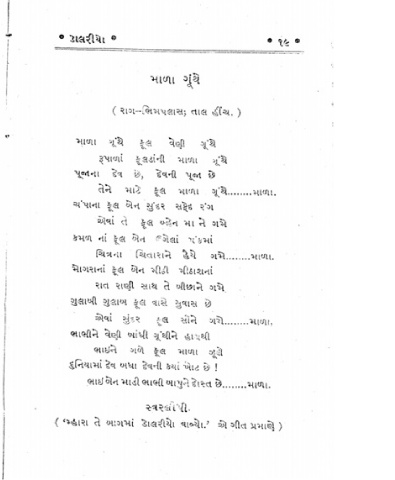 • ડાલરીયો • • ૧૯
માળા ગૂંથે
( રાગ—ભિમપલાસ; તાલ હીંચ. )
માળા ગૂંથે ફૂલ વેણી ગૂંથે
રૂપાળાં ફૂલડાંની માળા ગૂંથે
પૂજાના દેવ છે, દેવની પૂજા છે
તેને માટે ફૂલ માળા ગૂંથે........માળા.
ચંપાના ફૂલ બેન સુંદર સફેદ રંગ
એવાં તે ફૂલ બ્હેન મા ને ગમે
કમળ નાં ફૂલ બેન ઉગેલાં પંકમાં
ચિત્રના ચિતારાને હૈયે ગમે........માળા.
મોગરાનાં ફૂલ બેન મીઠી મીઠાશનાં
રાત રાણી સાથ તે બીછાને ગમે
ગુલાબી ગુલાબ ફૂલ વાસે સુવાસ છે
એવાં સુંદર ફૂલ સૌને ગમે........માળા.
ભાભીને વેણી બાંધી ગૂંથીને હાથથી
ભાઈને ગળે ફૂલ માળા ગૂંથે
દુનિયામાં દેવ બધા દેવની ક્યાં ખોટ છે !
ભાઈ બેન માડી ભાભી બાપુને દોસ્ત છે........માળા.
સ્વરલીપી.
( 'મ્હારા તે બાગમાં ડાલરીયો વાવ્યો.' એ ગીત પ્રમાણે )